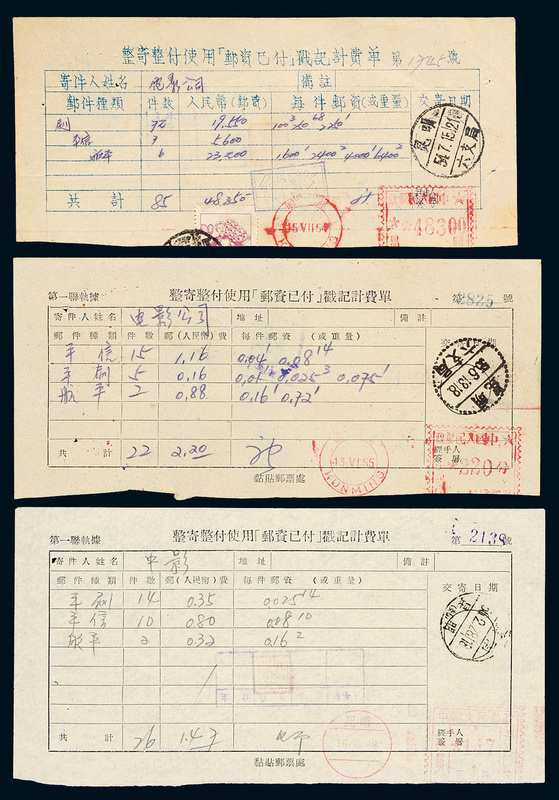 整寄整付使用「郵資已付」戳記計費单 第 1745 號
寄件人姓名 电影公司 備註
郵件種類 件数 人民幣(郵費) 每件郵資(或重量) 交寄日期
刷 72 19.550
平信 7 5.600
航平 6 23.200
共計 85 48.350
昆明 54.7.15.21 六支局
48300
第一聯執據 整寄整付使用「郵資已付」戳記計費單 第 2825 號
寄件人姓名 电影公司 地址 備註
郵件種類 件數 郵(人民幣)費 每件郵資 (或重量) 交寄日期
平信 15 1.16 0.04 1 0.08 14
平刷 5 0.16 0.01 1 0.025 3 0.075 1
航平 2 0.88 0.16 1 0.72 1
昆明 55.6.13.18 六支局
共計 22 2.20 經手人簽署
13 VI 55 KUNMING
220分
黏貼郵票處
第一聯執據 整寄整付使用「郵資已付」戳記計費單 第 2138 號
寄件人姓名 中影 地址 備註
郵件種類 件數 郵(人民幣)費 每件郵資 (或重量) 交寄日期
平刷 14 0.35 0.025 14
平信 10 0.80 0.08 10
航平 2 0.32 0.16 2
共計 26 1.47 經手人簽署
昆明
黏貼郵票處